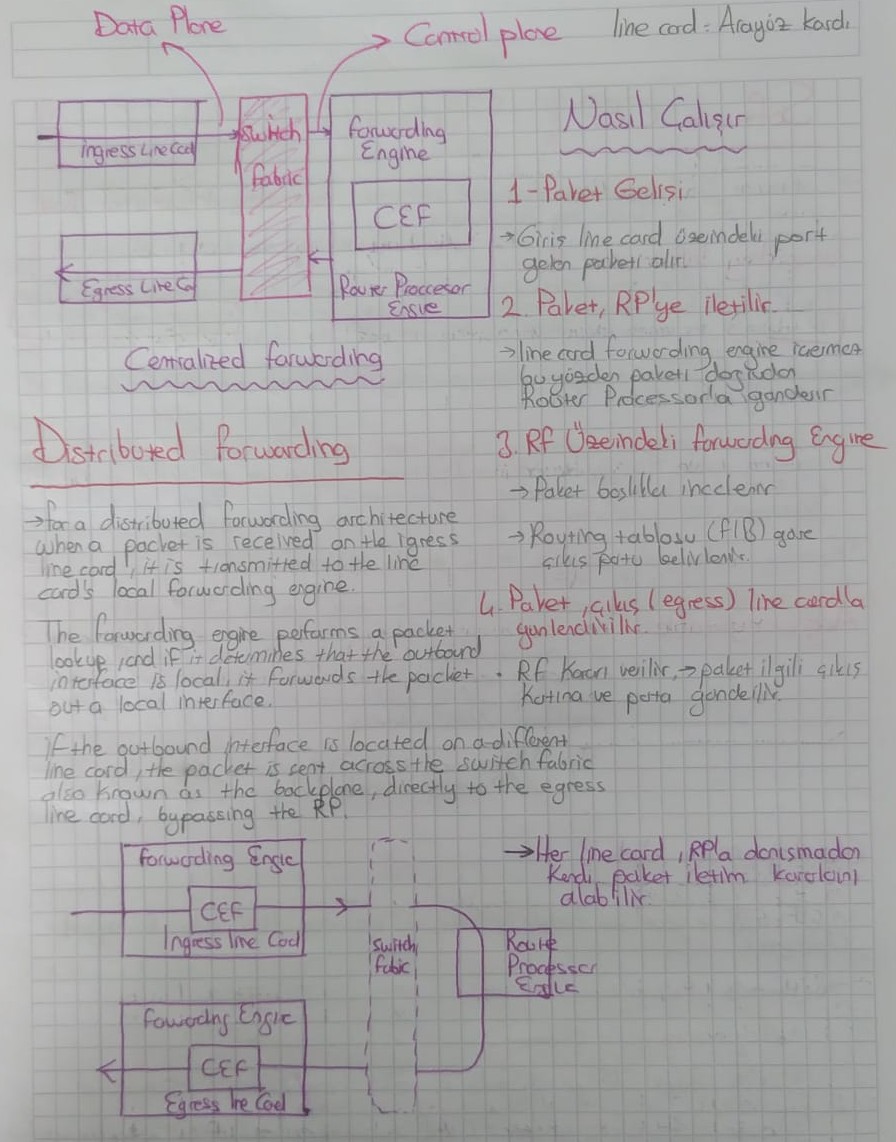 Data Plane
Control plane
line card = Arayüz kardı
Ingress Line Card
Switch
fabric
forwarding
Engine
CEF
Egress Line Ca
Router Proccesor
Engine
Centralized forwarding
Nasıl Çalışır
1-Paket Gelişi
→Giris line card üzeindeki port
gelen paketi alır.
2. Paket, RP'ye iletilir.
→line card forwarding engine icermez
bu yüzden paketi doğrudan
Router Processorla gonderir
3. RF Üzeindeki forwarding Engine
→Paket baslıkları incelenir
→Routing tablosu (FIB) gore
cıkıs portu belirlenir.
4. Paket, çıkış (egress) line cardla
yonlendirilir.
• RF Kararı verilir,→paket ilgili çıkıs
Kartına ve porta gonderilir
Distributed forwarding
→for a distributed forwarding architecture
when a packet is received on the igress
line card, it is transmitted to the line
card's local forwarding engine.
The forwarding engine performs a packet
lookup, and if it determines that the outbound
interface is local, it forwards the packet
out a local interface.
if the outbound interface is located on a different
line card, the packet is sent across the switch fabric
also known as the backplane, directly to the egress
line card, bypassing the RP.
→Her line card, RPla danısmadan
Kendi paket iletim kararlarını
alabilir
Forwarding Engie
CEF
Ingress line Card
Switch
fabic
Route
Processor
Engie
Fowarding Engie
CEF
Egress line Card